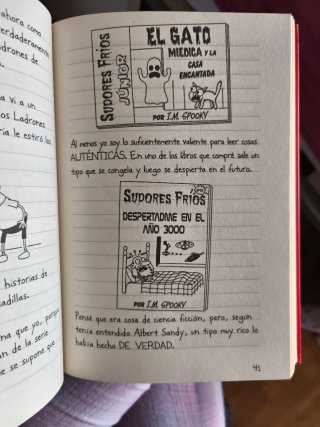 ahora como
verdaderamente
drones de
a vi a un
os Ladrones
ría le estiró los
historias de
adillas.
na que yo, porque
an de la serie
se supone que
SUDORES FRÍOS
JÚNIOR
EL GATO
MIEDICA Y LA
CASA
ENCANTADA
POR I.M. SPOOKY
Al menos yo soy lo suficientemente valiente para leer cosas
AUTÉNTICAS. En uno de los libros que compré sale un
tipo que se congela y luego se despierta en el futuro...
SUDORES FRÍOS
DESPERTADME EN EL
AÑO 3000
POR I.M. SPOOKY
Pensé que era cosa de ciencia ficción, pero, según
tenía entendido Albert Sandy, un tipo muy rico lo
había hecho DE VERDAD.
41